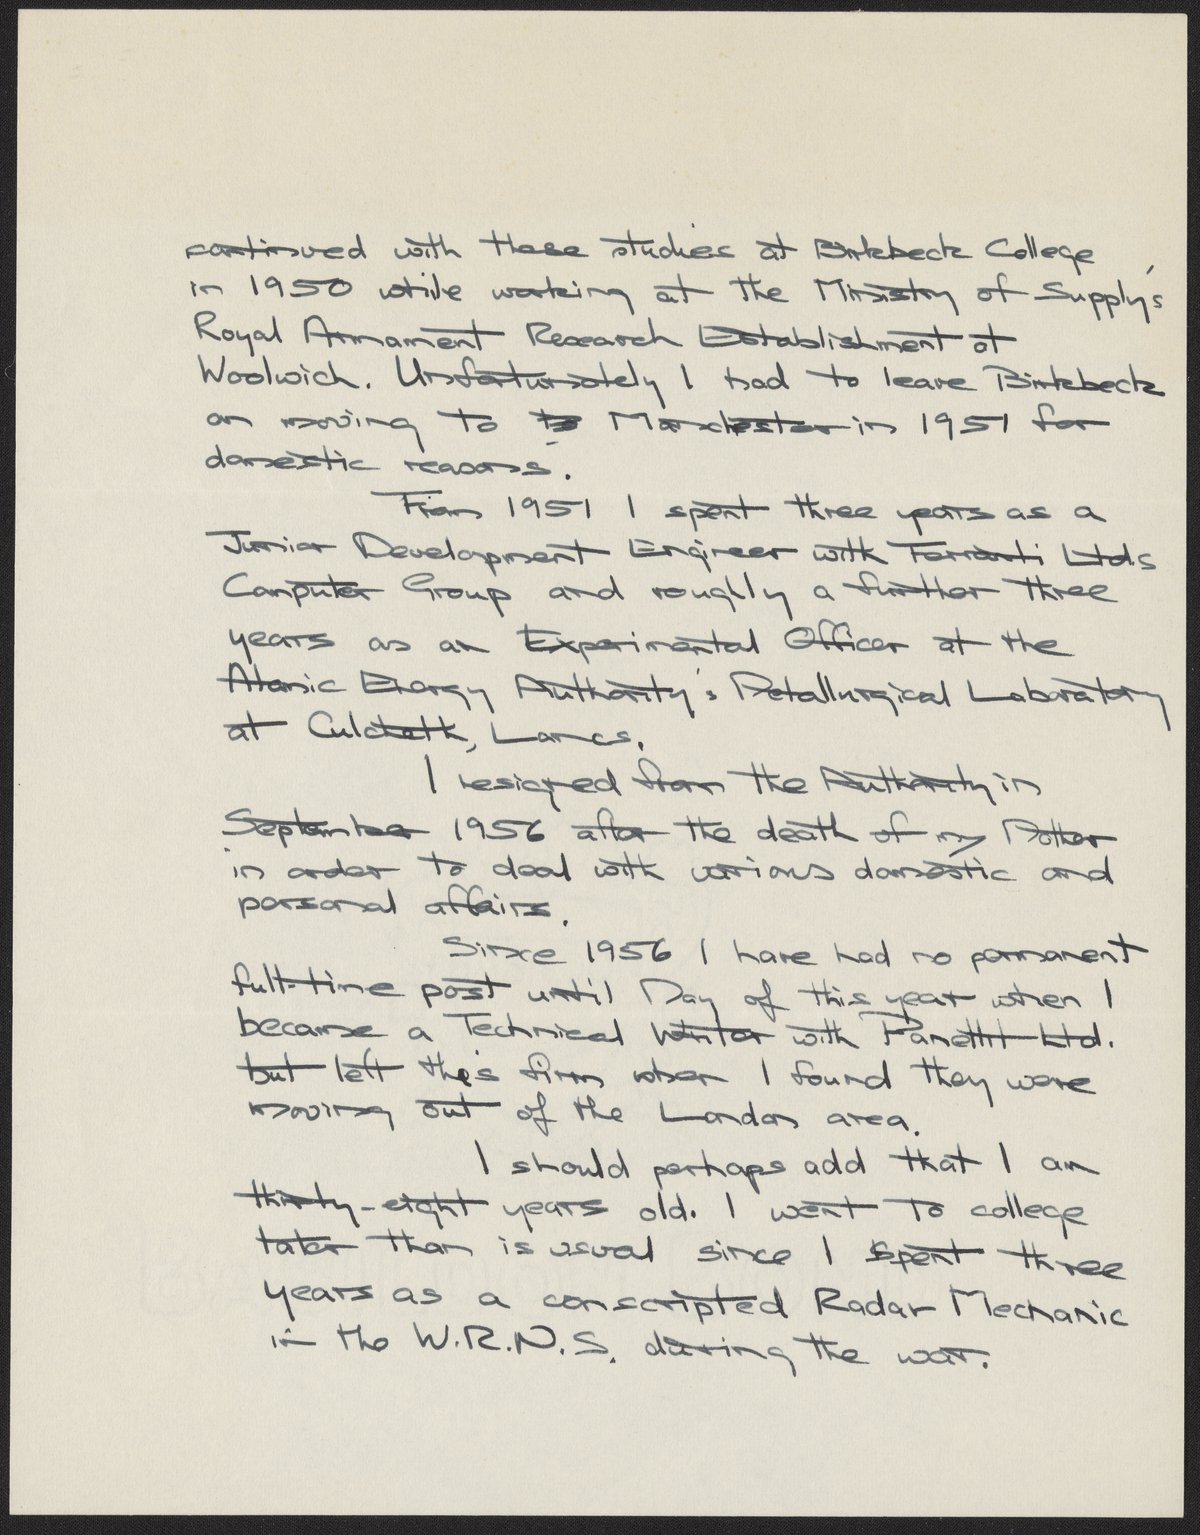 continued with these studies at Birkbeck College
in 1950 while working at the Ministry of Supply's
Royal Armament Research Establishment at
Woolwich. Unfortunately I had to leave Birkbeck
on moving to Manchester in 1951 for
domestic reasons.
From 1951 I spent three years as a
Junior Development Engineer with Ferranti Ltds
Computer Group and roughly a further three
years as an Experimental Officer at the
Atomic Energy Authority's Metallurgical Laboratory
at Culcheth, Lancs.
I resigned from the Authority in
September 1956 after the death of my Mother
in order to deal with various domestic and
personal affairs.
Since 1956 I have had no permanent
full-time post until May of this year when I
became a Technical Writer with Panellit Ltd.
but left this firm when I found they were
moving out of the London area.
I should perhaps add that I am
thirty-eight years old. I went to college
later than is usual since I spent three
years as a conscripted Radar Mechanic
in the W.R.N.S. during the war.